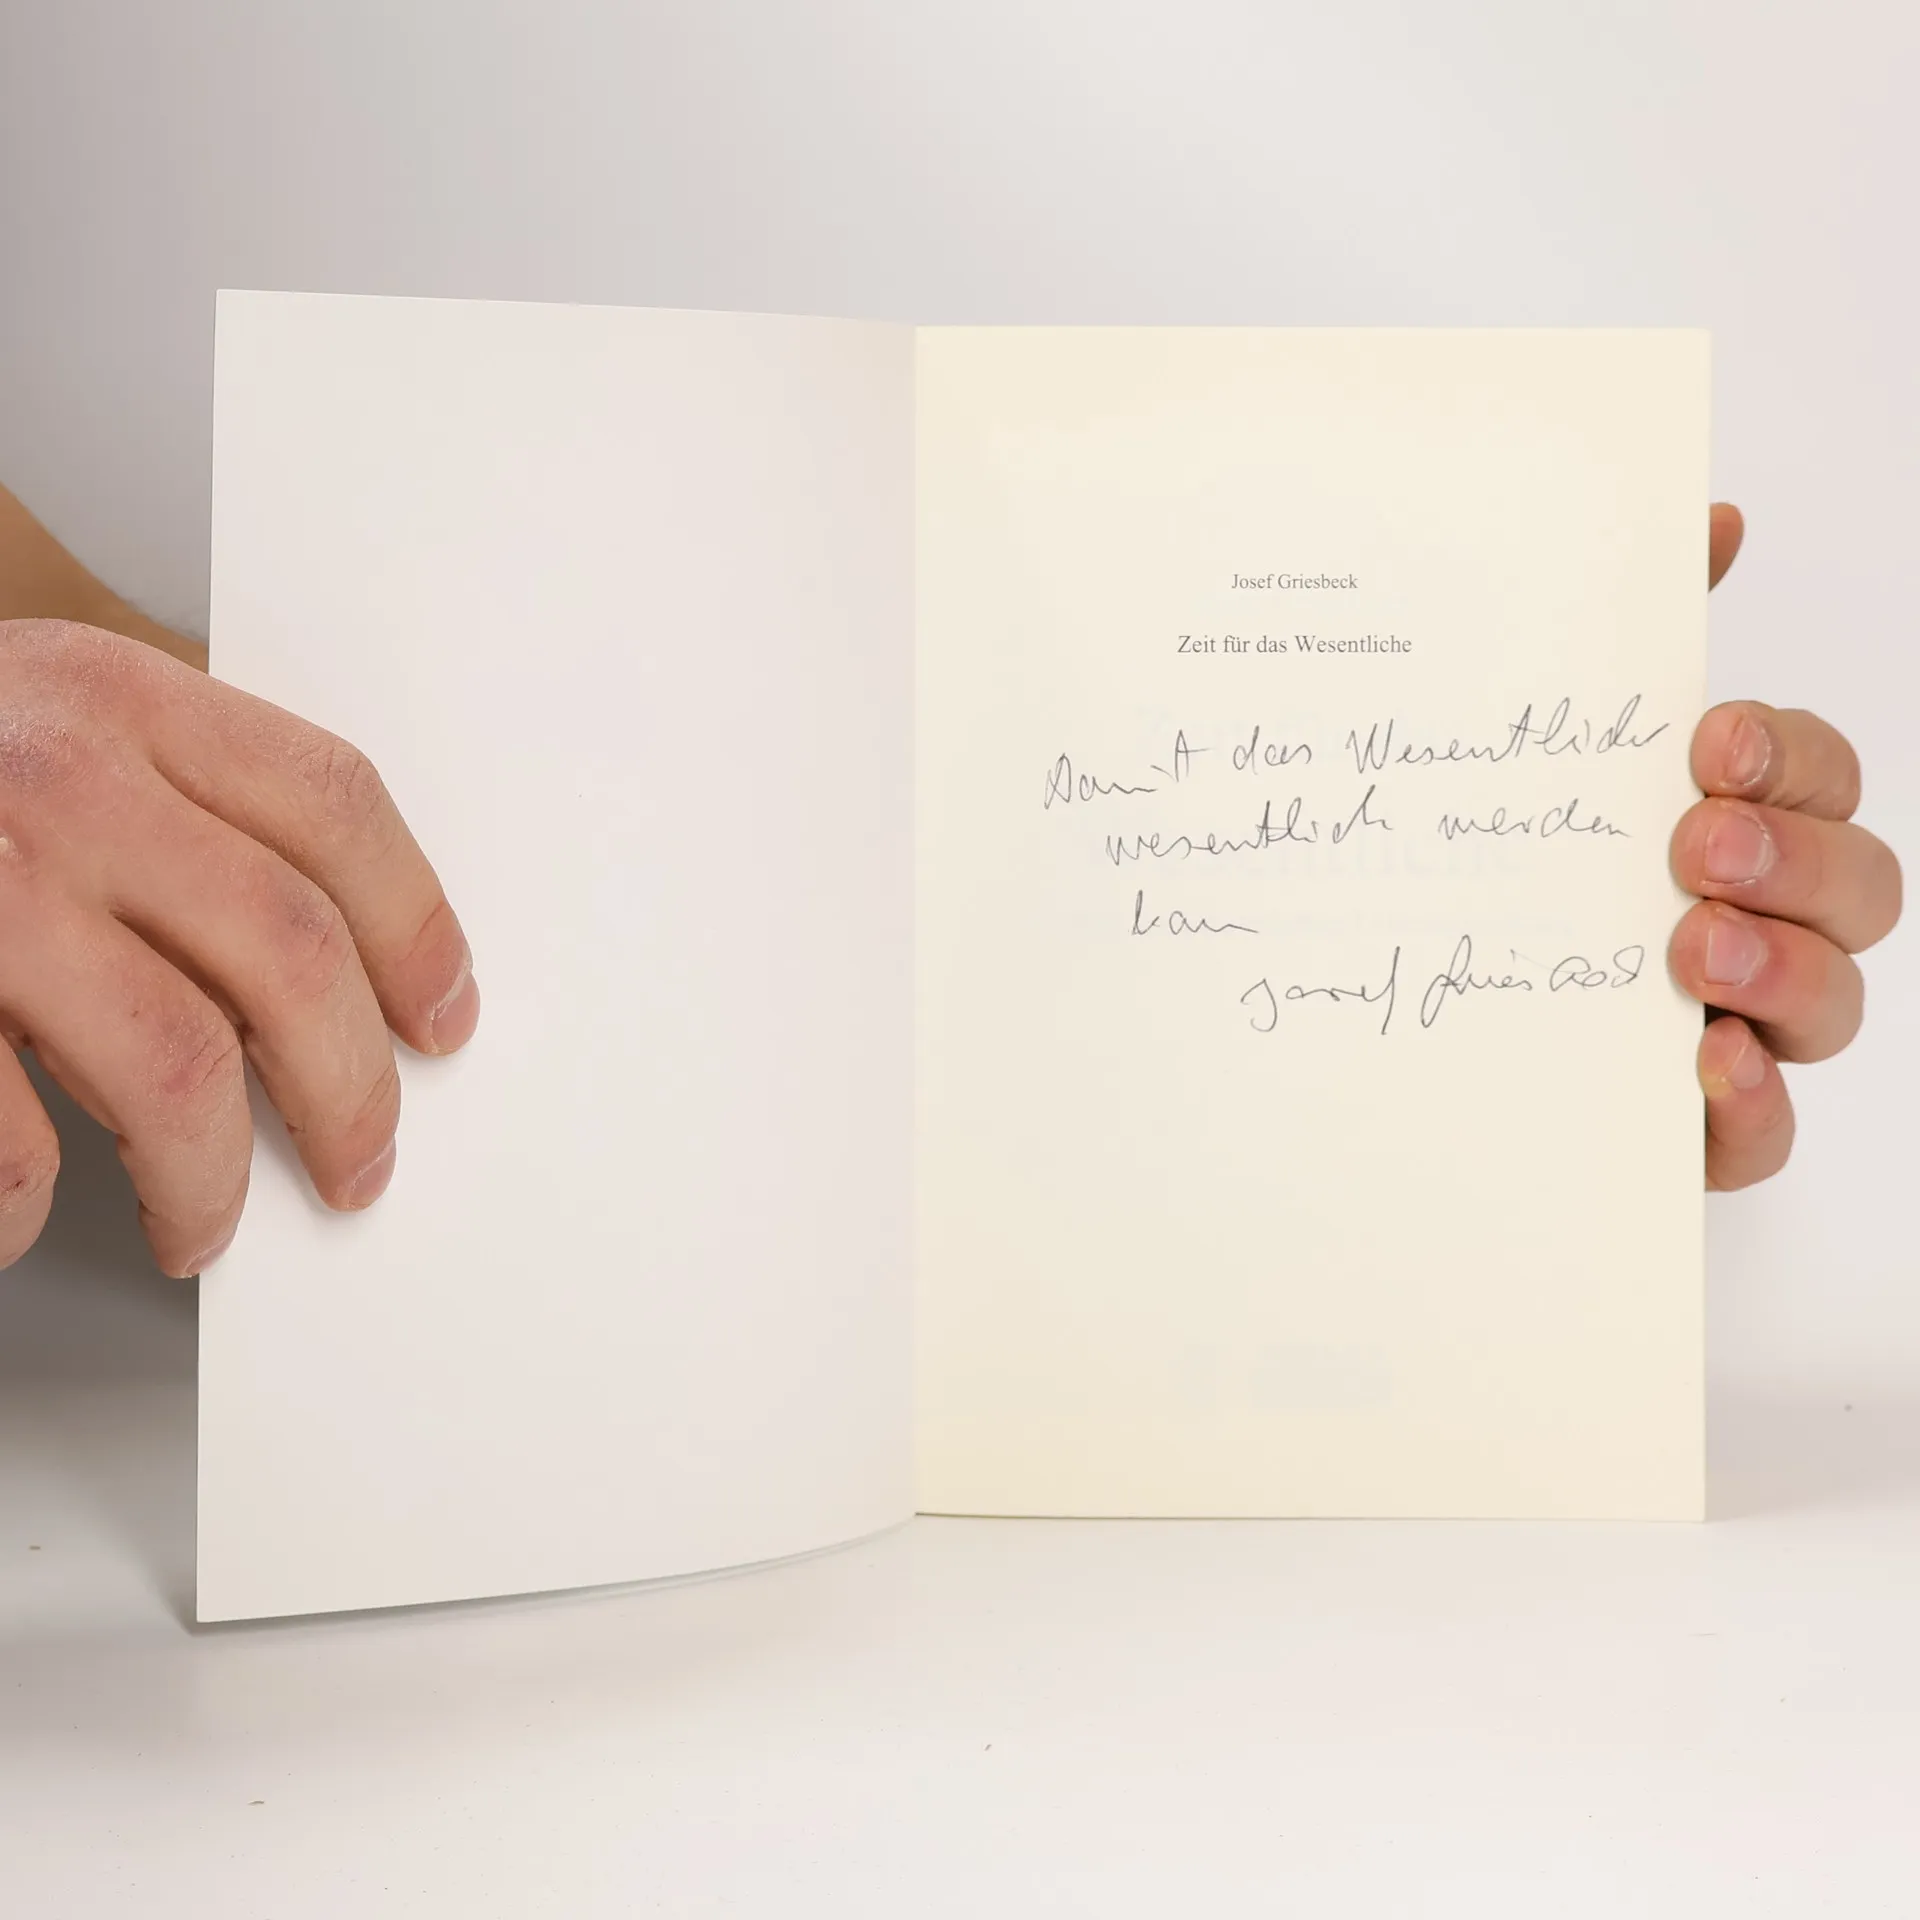 Josef Griesbeck
Zeit für das Wesentliche
Damit das Wesentliche
wesentlich werden
kann
Josef Griesbeck